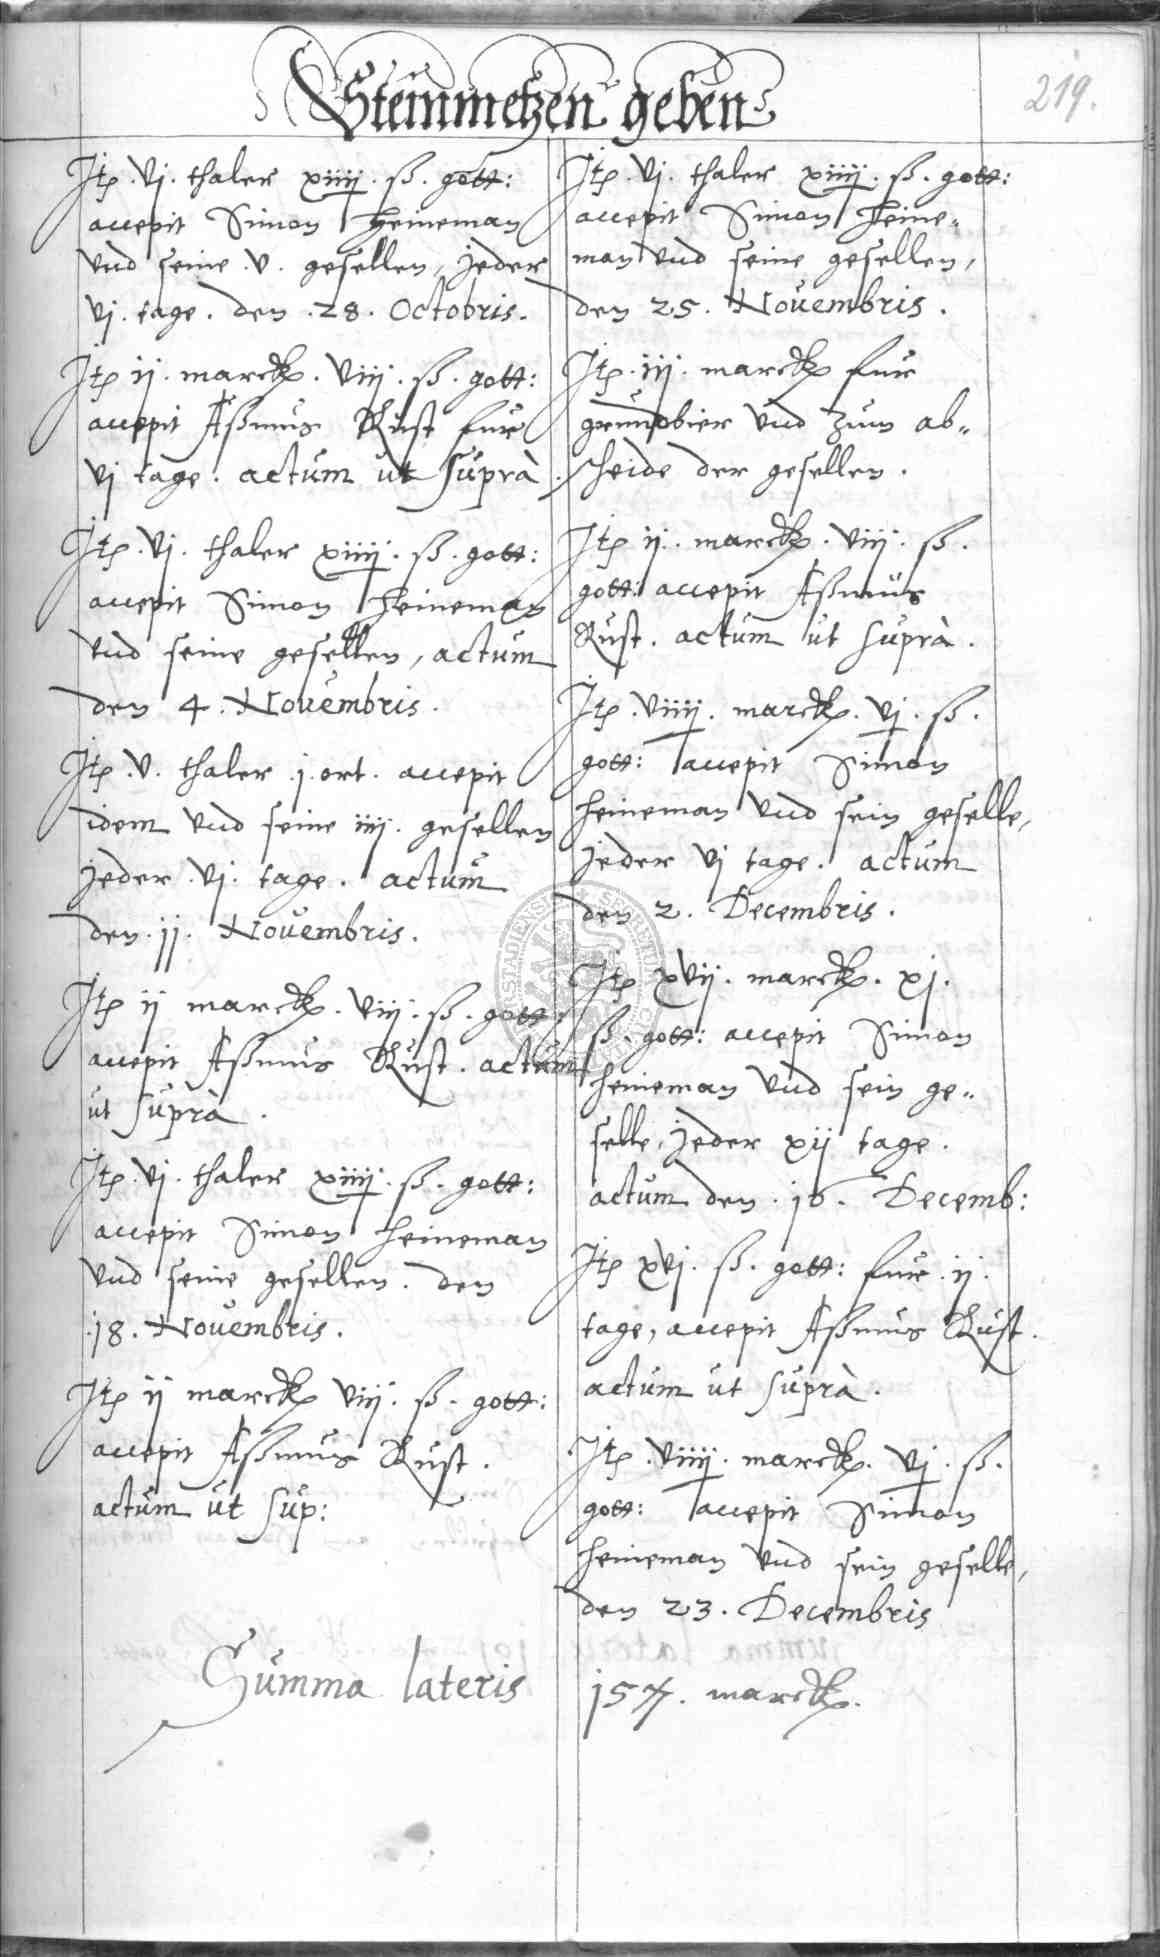 Steinmetzen geben
219.
Jtꝫ. vj. thaler xiiiij. ß. gott:
accepit Simon Heineman
vnd seine .v. gesellen, jeder
vj. tage. den .28. Octobris.
Jtꝫ ij. marck. viij. ß. gott:
accepit Aßmus Rust fur
vj tage. actum ut suprà.
Jtꝫ. vj. thaler xiiiij. ß. gott:
accepit Simon Heineman
vnd seine gesellen, actum
den 4. Nouembris.
Jtꝫ .v. thaler .j. ort. accepit
idem vnd seine iiij. gesellen
jeder .vj. tage. actum
den .jj. Nouembris.
Jtꝫ ij marck. viij. ß. gott:
accepit Aßmus Rust. actum
ut suprà.
Jtꝫ. vj. thaler xiiiij. ß. gott:
accepit Simon Heineman
vnd seine gesellen. den
.18. Nouembris.
Jtꝫ ij marck viij. ß. gott:
accepit Aßmus Rust.
actum ut sup:
Jtꝫ. vj. thaler xiiiij. ß. gott:
accepit Simon Heine„
man vnd seine gesellen,
den 25. Nouembris.
Jtꝫ. iij. marck fur
grunobier vnd zum ab„
scheide der gesellen.
Jtꝫ ij. marck. viij. ß.
gott: accepit Aßmus
Rust. actum ut suprà.
Jtꝫ .viiij. marck. vj. ß.
gott: accepit Simon
Heineman vnd sein geselle,
jeder vj tage. actum
den 2. Decembris.
Jtꝫ xvij. marck. xj.
ß. gott: accepit Simon
Heineman vnd sein ge„
selle, jeder xij tage.
actum den .16. Decemb:
Jtꝫ xvj. ß. gott: fur .ij.
tage, accepit Aßmus Rust.
actum ut suprà.
Jtꝫ .viiij. marck. vj. ß.
gott: accepit Simon
Heineman vnd sein geselle,
den 23. Decembris
Summa lateris 157. marck.